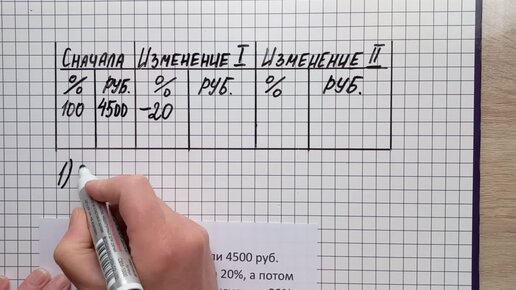 Сначала Изменение I Изменение II
% руб. % руб. % руб.
100 4500 -20
1)
ли 4500 руб.
20%, а потом